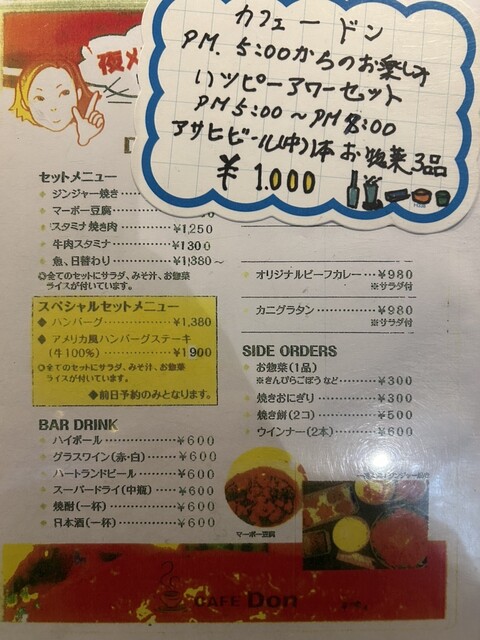 カフェー ドン
PM. 5:00からのお楽しみ
ハッピーアワーセット
PM 5:00 〜 PM 8:00
アサヒビール(中)1本 お惣菜3品
¥ 1.000
夜メ
セットメニュー
ジンジャー焼き
マーボー豆腐
スタミナ焼き肉 ¥1,250
牛肉スタミナ ¥1300
魚、日替わり ¥1,380〜
◎全てのセットにサラダ、みそ汁、お惣菜
ライスが付いています。
スペシャルセットメニュー
◆ ハンバーグ ¥1,380
◆ アメリカ風ハンバーグステーキ
(牛100%) ¥1900
◎全てのセットにサラダ、みそ汁、お惣菜
ライスが付いています。
◆前日予約のみとなります。
BAR DRINK
ハイボール ¥600
グラスワイン(赤・白) ¥600
ハートランドビール ¥600
スーパードライ(中瓶) ¥600
焼酎(一杯) ¥600
日本酒(一杯) ¥600
オリジナルビーフカレー ¥980
※サラダ付
カニグラタン ¥980
※サラダ付
SIDE ORDERS
お惣菜(1品)
※きんぴらごぼうなど ¥300
焼きおにぎり ¥300
焼き餅(2コ) ¥500
ウインナー(2本) ¥600
マーボー豆腐
CAFE Don